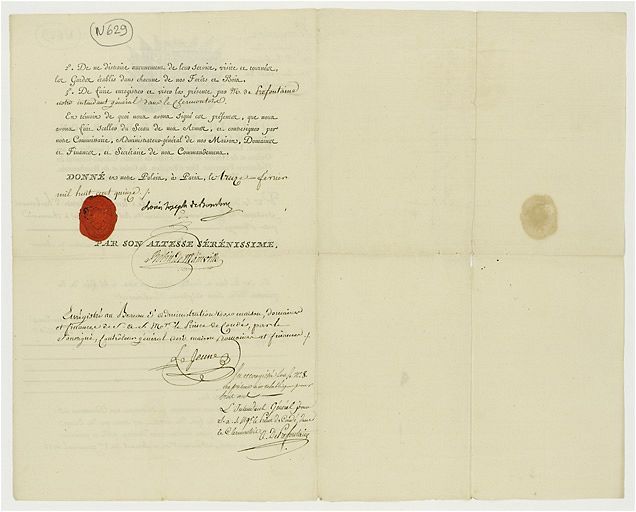 N 629
2°. De ne distraire aucunement de leur service, visite et tournées,
les Gardes établis dans chacune de nos Forêts et Bois.
3°. De faire enregistrer et viser les présentes par M. de Préfontaine
notre intendant général dans le Clermontois.
En témoin de quoi nous avons signé ces présentes, que nous
avons fait sceller du Sceau de nos Armes, et contresigner par
notre Commissaire, Administrateur-général de nos Maisons, Domaines
et Finances, et Secrétaire de nos Commandemens.
DONNÉ en notre Palais, à Paris, le treize février
mil huit cent quinze /.
Louis Joseph de Bourbon
PAR SON ALTESSE SÉRÉNISSIME,
de Mainville
Enregistré au Bureau d'administration des maison, domaines
et finances de S. A. S. Mgr. le Prince de Condé, par le
Soussigné, Contrôleur général des maison domaines et finances /.
Le Jeune
L'Intendant Général pour
S. A. S. Mgr. le Prince de Condé, dans
le Clermontois
de Préfontaine